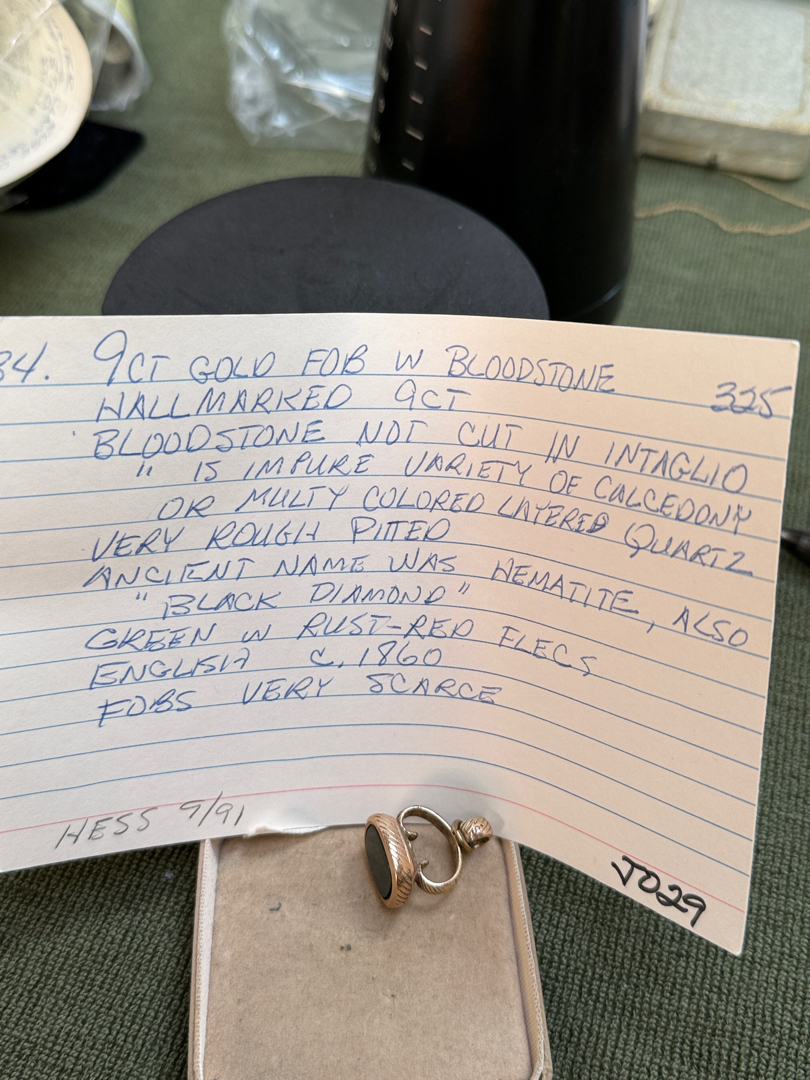 34. 9CT GOLD FOB W BLOODSTONE
325
HALLMARKED 9CT
BLOODSTONE NOT CUT IN INTAGLIO
" IS IMPURE VARIETY OF CALCEDONY
OR MULTY COLORED LAYERED QUARTZ
VERY ROUGH PITTED
ANCIENT NAME WAS HEMATITE, ALSO
"BLACK DIAMOND"
GREEN W RUST-RED FLECS
ENGLISH C. 1860
FOBS VERY SCARCE
HESS 9/91
JO29